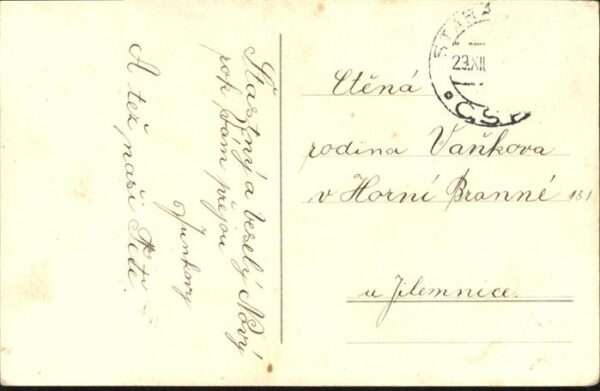 Šťastný a veselý Nový
rok, Vám přejou
Junkovy
A též naši
STAR
23.XII
ČSR
Ctěná
rodina Vaňkova
v Horní Branné 151
u Jilemnice.